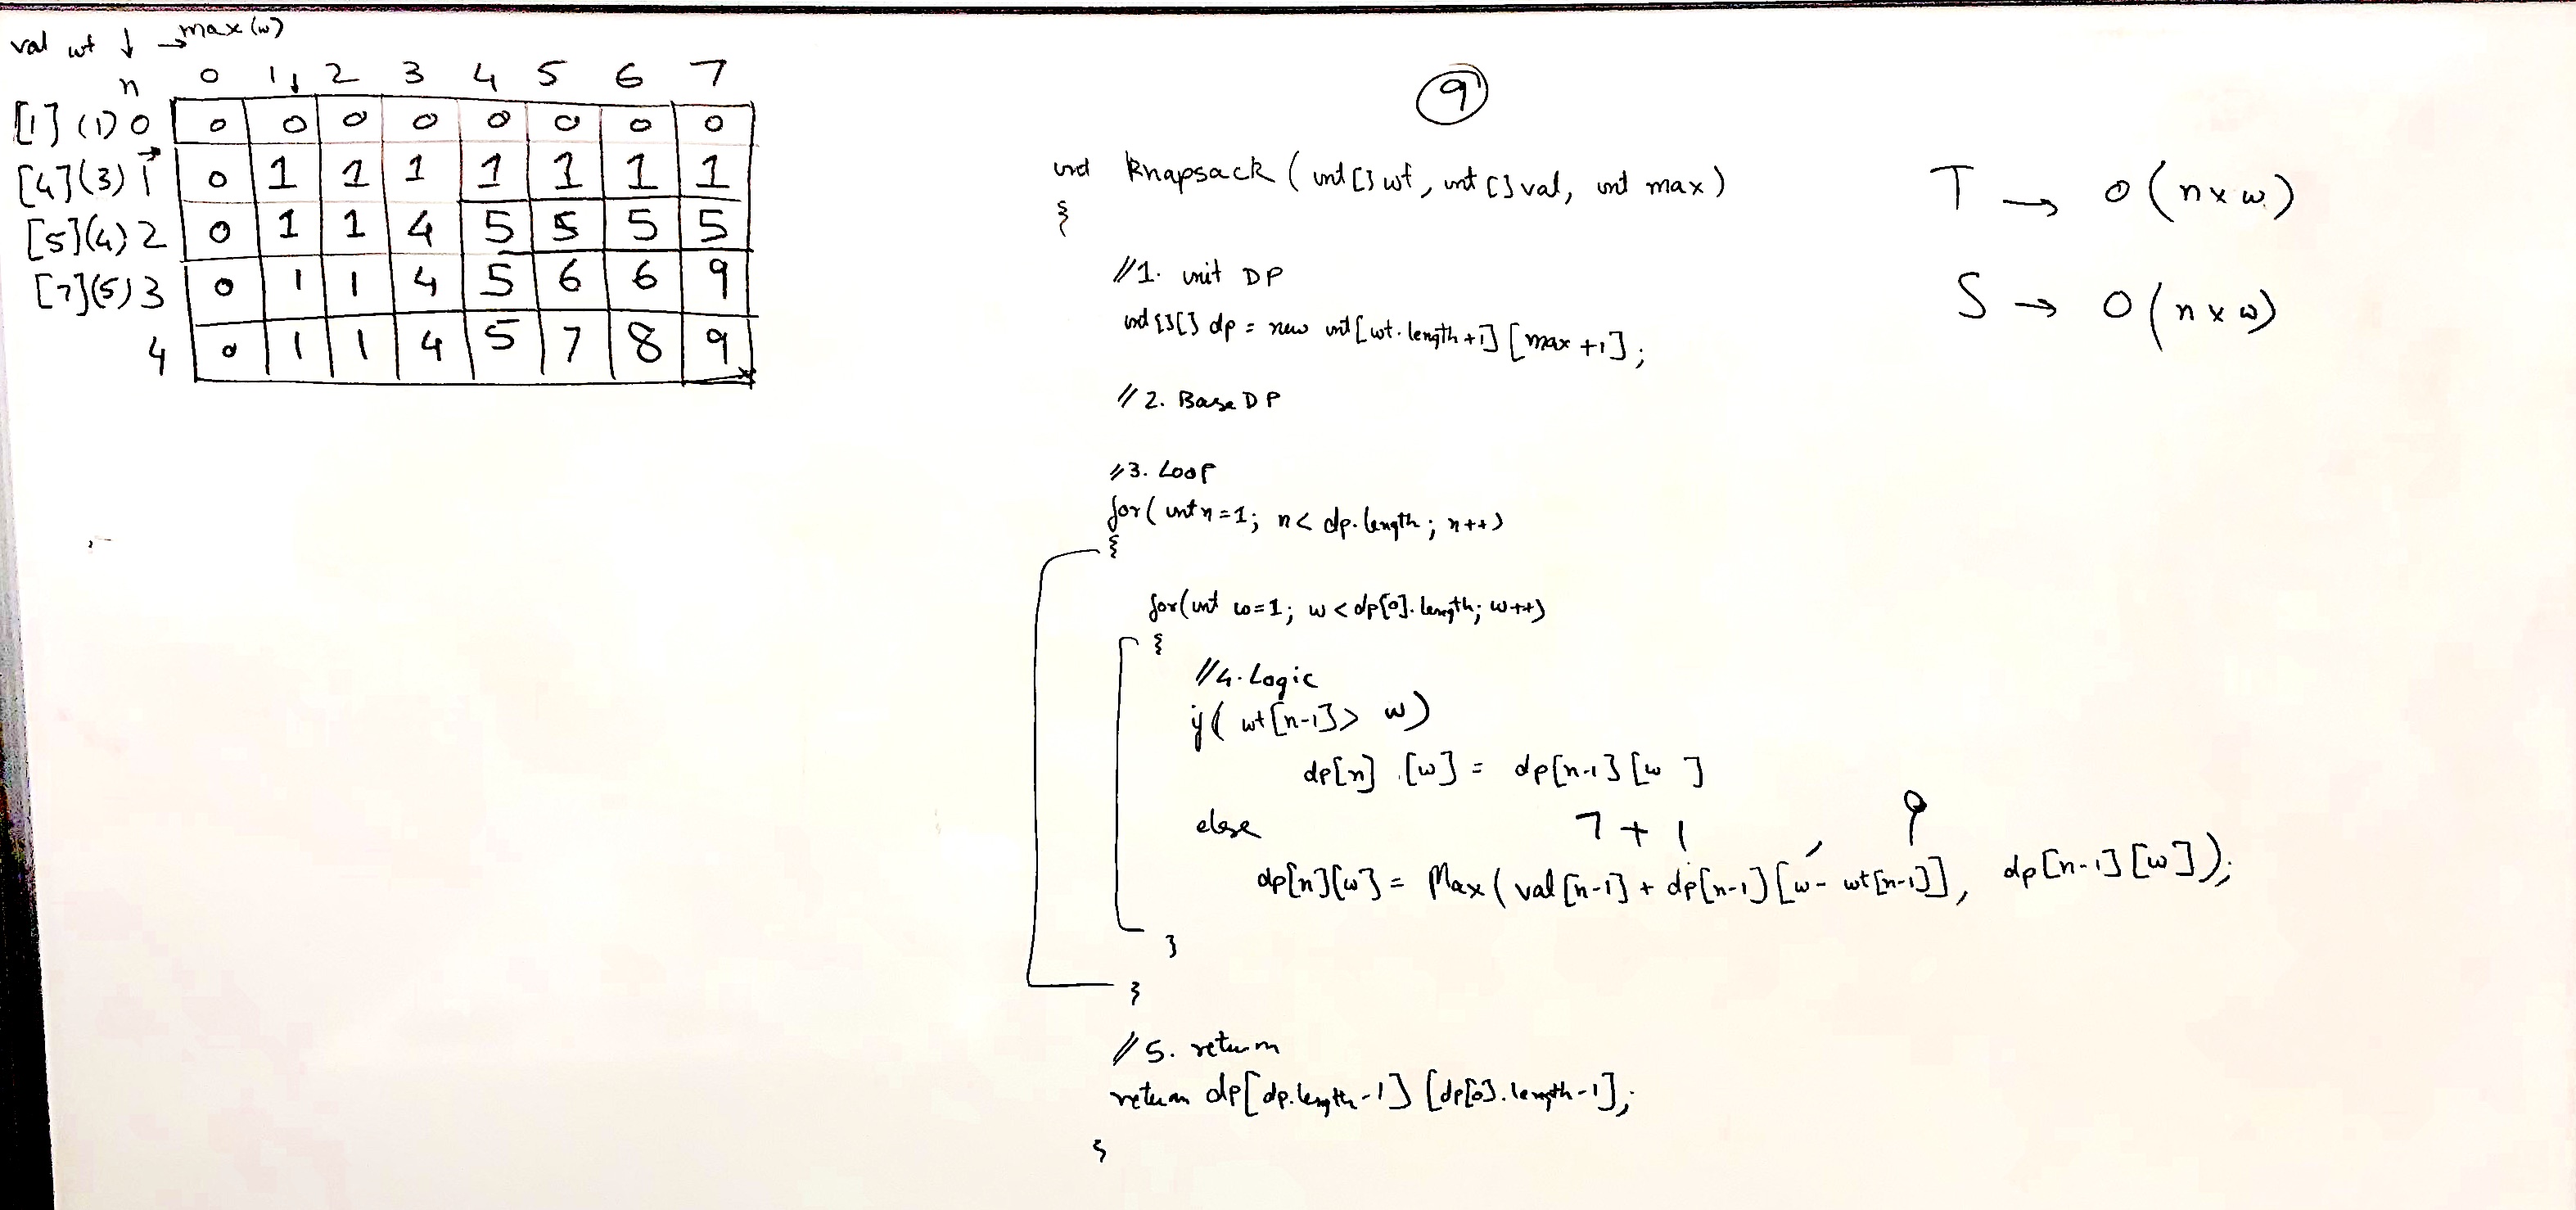 val wt ↓ → max(w)
n 0 1↓ 2 3 4 5 6 7
[1] (1) 0 0 0 0 0 0 0 0 0
[4] (3) 1 0 1 1 1 1 1 1 1
[5] (4) 2 0 1 1 4 5 5 5 5
[7] (5) 3 0 1 1 4 5 6 6 9
4 0 1 1 4 5 7 8 9
9
int Knapsack (int[] wt, int[] val, int max)
{
//1. init DP
int[][] dp = new int[wt.length+1][max+1];
//2. Base DP
//3. Loop
for(int n=1; n< dp.length; n++)
{
for(int w=1; w<dp[0].length; w++)
{
//4. Logic
if( wt[n-1]> w)
dp[n] [w] = dp[n-1][w ]
else 7 + 1 9
dp[n][w] = Max( val[n-1] + dp[n-1][w- wt[n-1]], dp[n-1][w]);
}
}
//5. return
return dp[dp.length-1][dp[0].length-1];
}
T → O(n×w)
S → O(n×w)